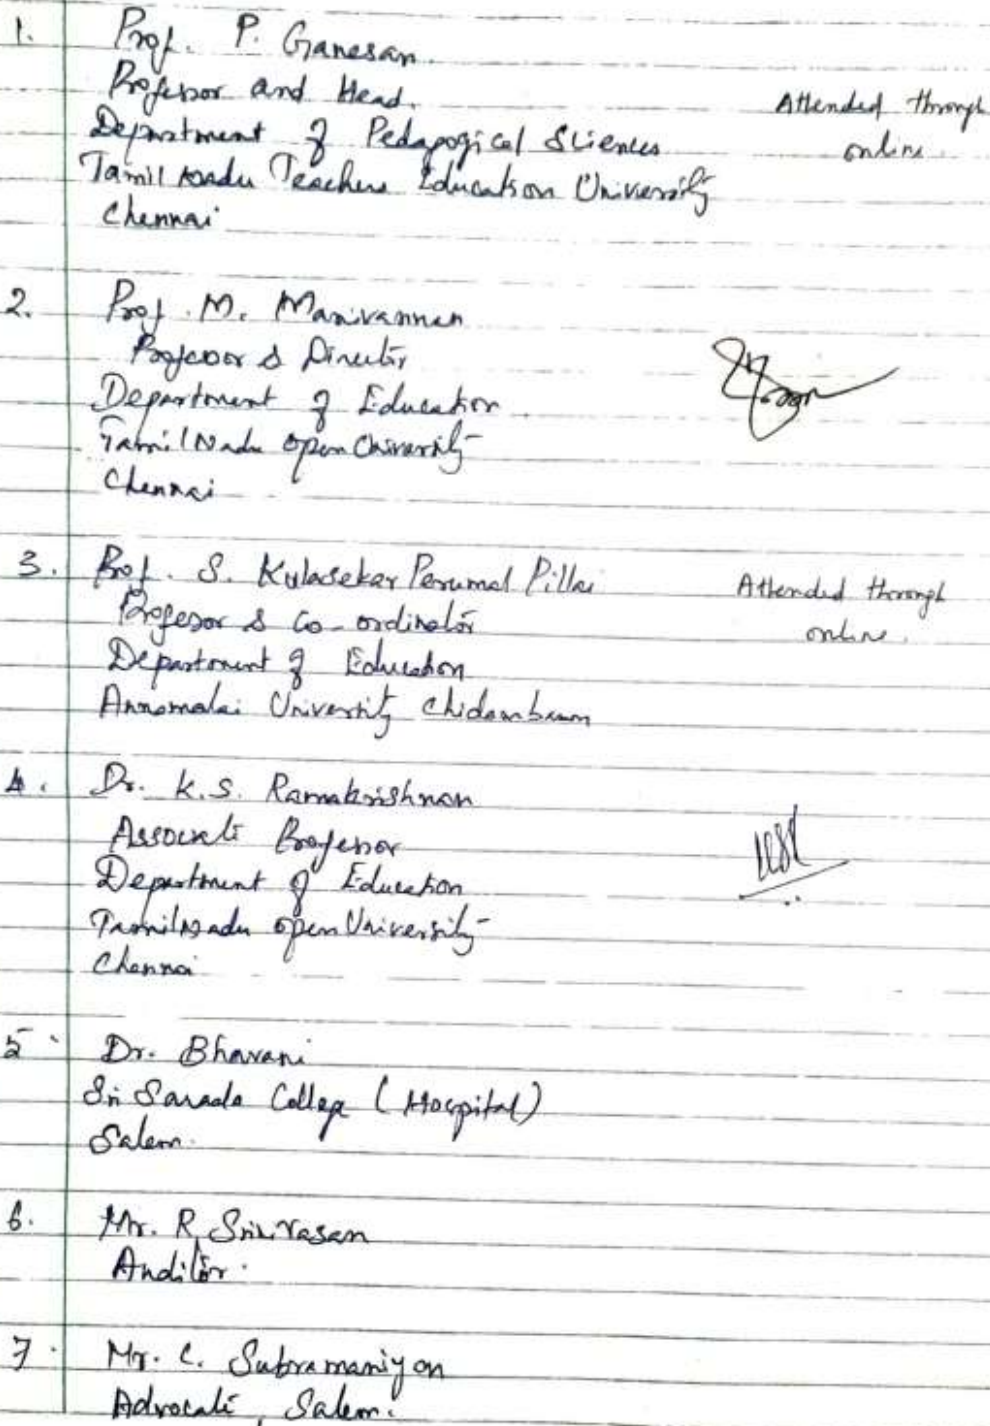 1. Prof. P. Ganesan.
Professor and Head.
Attended through
Department of Pedagogical Sciences
online.
Tamil Nadu Teachers Education University
Chennai
2. Prof. M. Manivannan
Professor & Director
Department of Education
Tamil Nadu Open University
Chennai
3. Prof. S. Kulasekar Perumal Pillai
Attended through
Professor & Co-ordinator
online.
Department of Education
Annamalai University Chidambaram
4. Dr. K.S. Ramakrishnan
Associate Professor
Department of Education
TamilNadu Open University
Chennai
5. Dr. Bhavani
Sri Sarada College (Hospital)
Salem.
6. Mr. R. Srinivasan
Auditor.
7. Mr. C. Subramaniyan
Advocate, Salem.